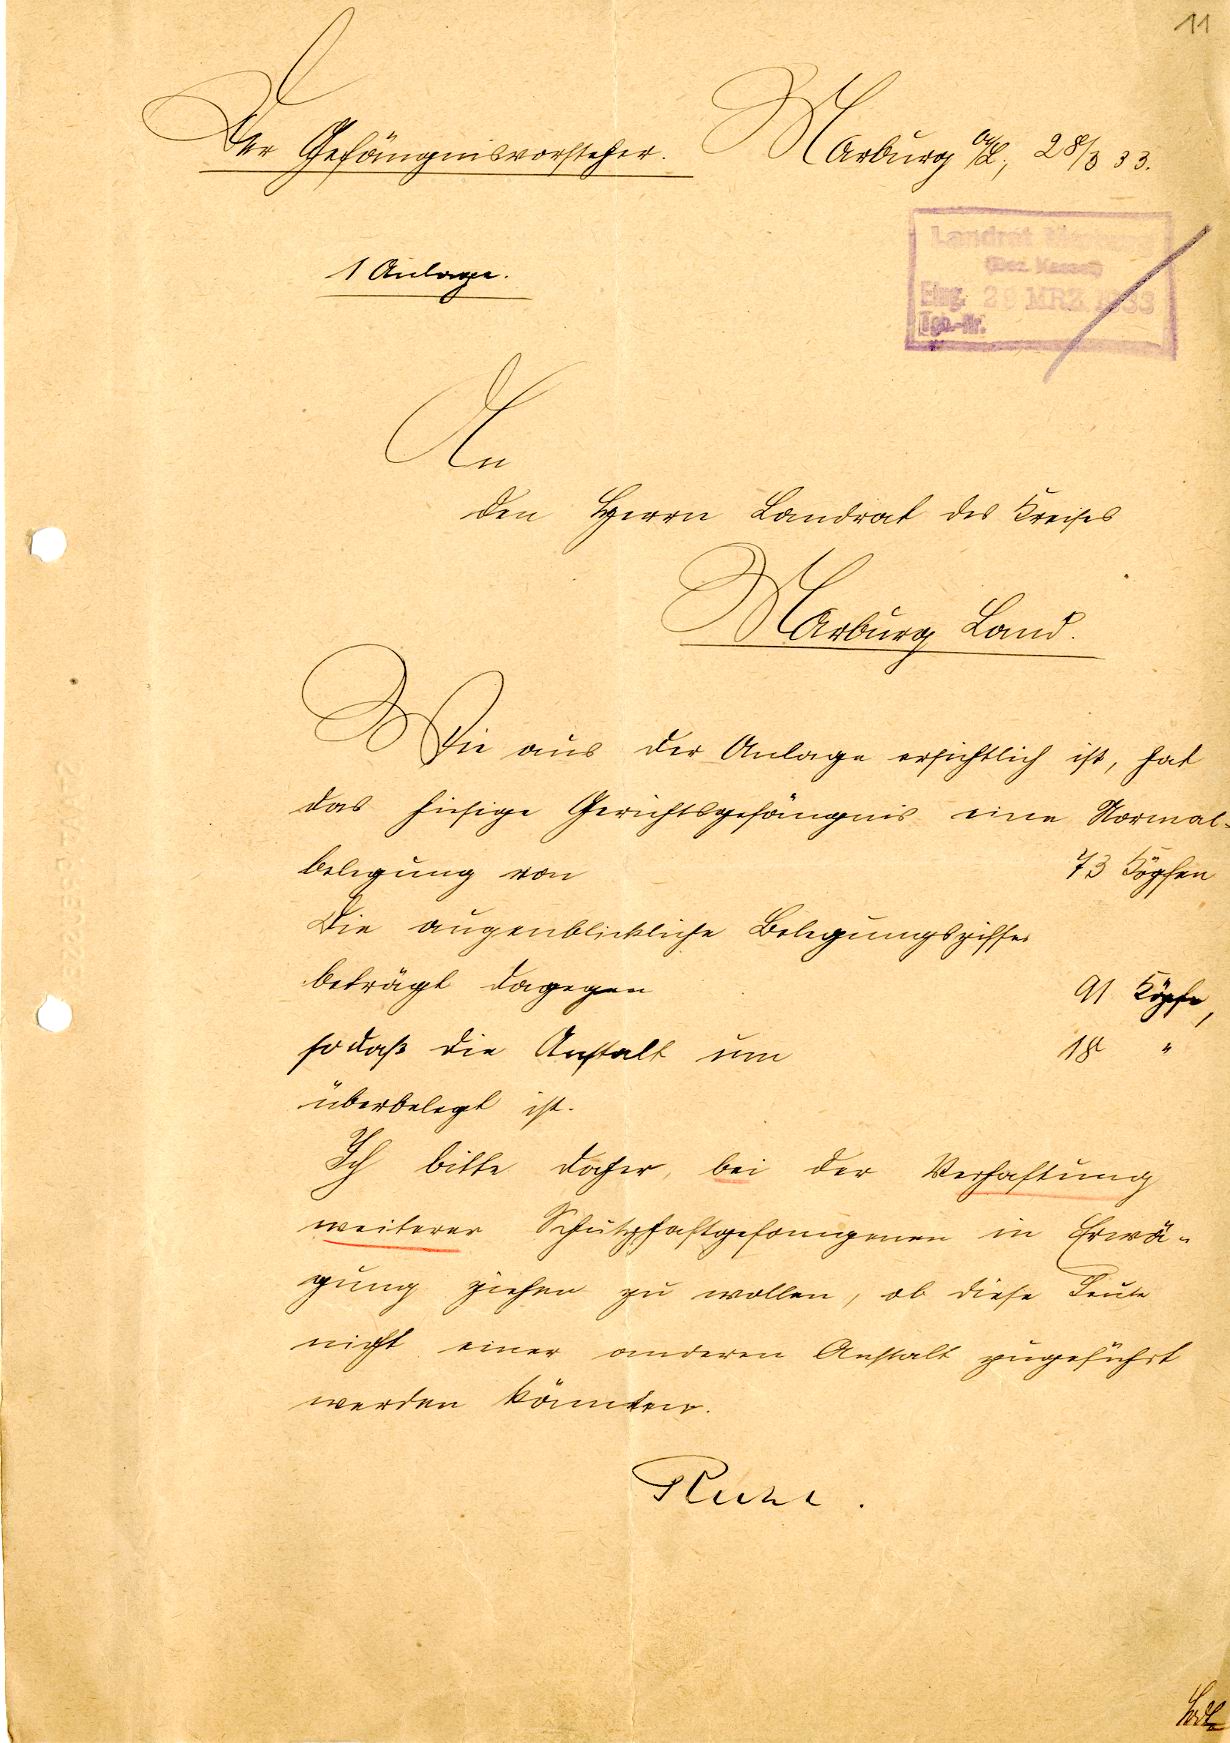 11
Der Gefängnisvorsteher. Marburg a/L., 28/3 33.
Landrat Marburg
(Bez. Kassel)
Eing. 29 MRZ. 1933
Tgb.-Nr.
1 Anlage.
An
den Herrn Landrat des Kreises
Marburg Land.
Wie aus der Anlage ersichtlich ist, hat
das hiesige Gerichtsgefängnis eine Normal-
belegung von 73 Köpfen
Die augenblickliche Belegungsziffer
beträgt dagegen 91 Köpfe,
sodaß die Anstalt um 18 "
überbelegt ist.
Ich bitte daher, bei der Verhaftung
weiterer Schutzhaftgefangenen in Erwä-
gung ziehen zu wollen, ob diese Leute
nicht einer anderen Anstalt zugeführt
werden könnten.